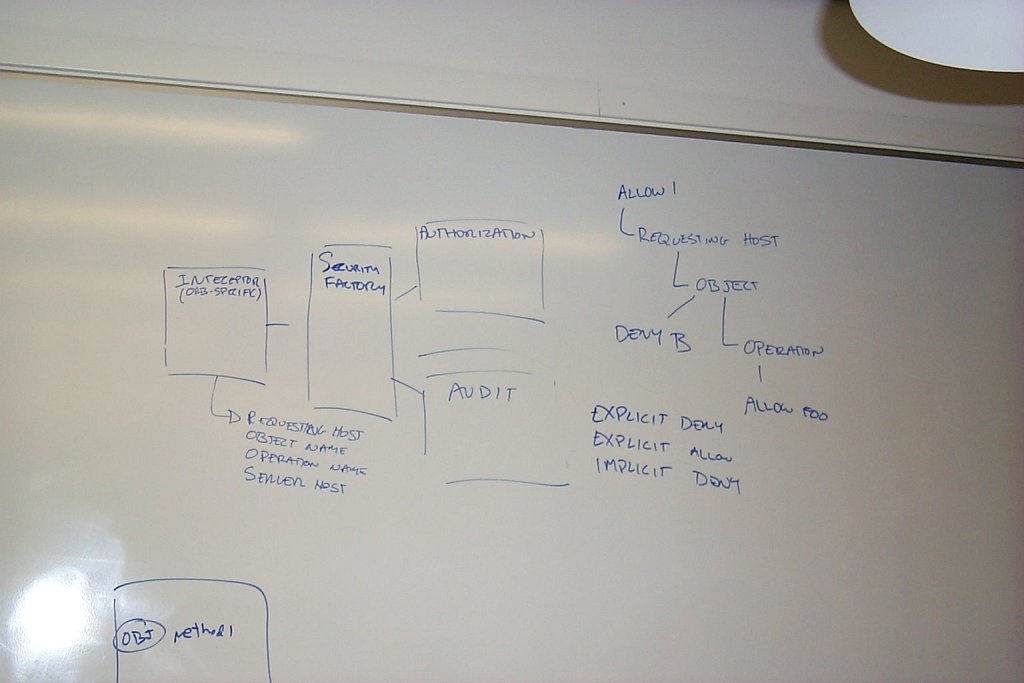 INTECEPTOR
(ORB-SPECIFIC)
SECURITY
FACTORY
AUTHORIZATION
AUDIT
REQUESTING HOST
OBJECT NAME
OPERATION NAME
SERVER HOST
ALLOW 1
REQUESTING HOST
OBJECT
DENY B
OPERATION
ALLOW FOO
EXPLICIT DENY
EXPLICIT ALLOW
IMPLICIT DENY
OBJ method1